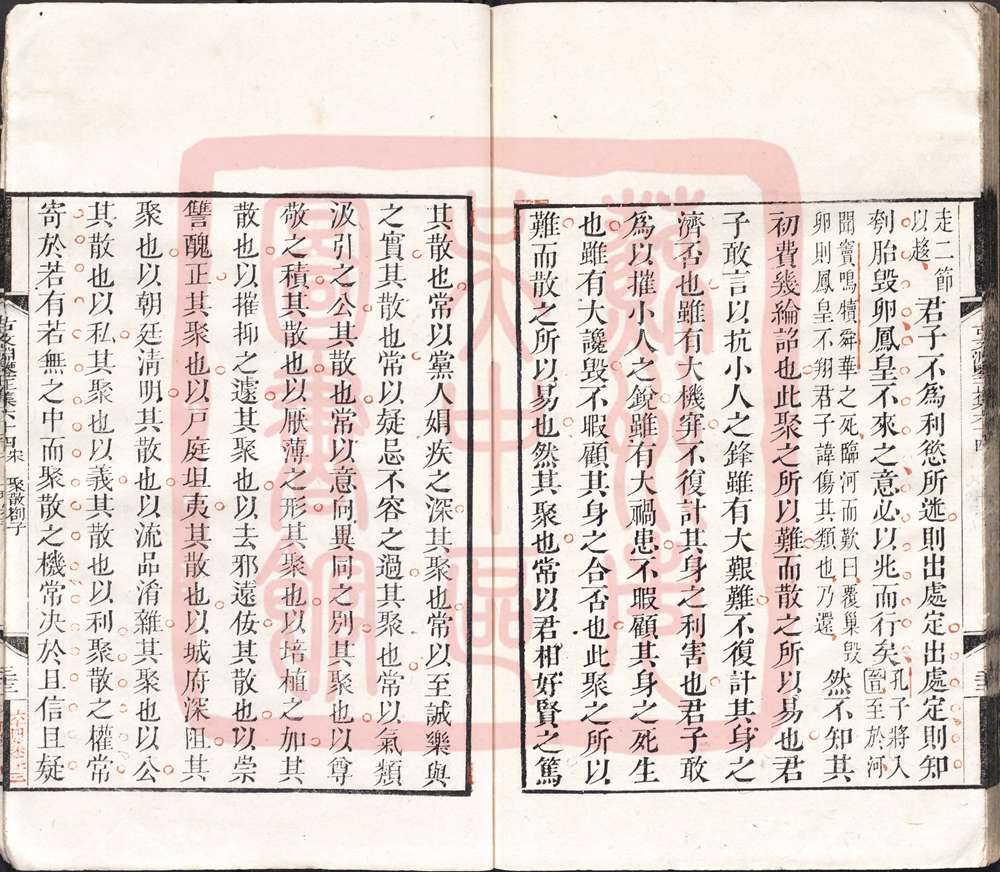 走二節以趍君子不為利慾所迯則出處定出處定則知
刳胎毀卵鳳皇不來之意必以兆而行矣孔子將入晉至於河
聞竇鳴犢舜華之死臨河而歎曰覆巢毀卵則鳳皇不翔君子諱傷其類也乃還然不知其
初費幾綸詔也此聚之所以難而散之所以易也君
子敢言以抗小人之鋒雖有大艱難不復計其身之
濟否也雖有大機穽不復計其身之利害也君子敢
為以摧小人之銳雖有大禍患不暇顧其身之死生
也雖有大讒毀不暇顧其身之合否也此聚之所以
難而散之所以易也然其聚也常以君相好賢之篤
其散也常以黨人娟疾之深其聚也常以至誠樂與
之實其散也常以疑忌不容之過其聚也常以氣類
汲引之公其散也常以意向異同之別其聚也以尊
敬之積其散也以厭薄之形其聚也以培植之加其
散也以摧抑之遽其聚也以去邪遠佞其散也以崇
讐醜正其聚也以戸庭坦夷其散也以城府深阻其
聚也以朝廷淸明其散也以流品淆雜其聚也以公
其散也以私其聚也以義其散也以利聚散之權常
寄於若有若無之中而聚散之機常决於且信且疑
聚散劉子